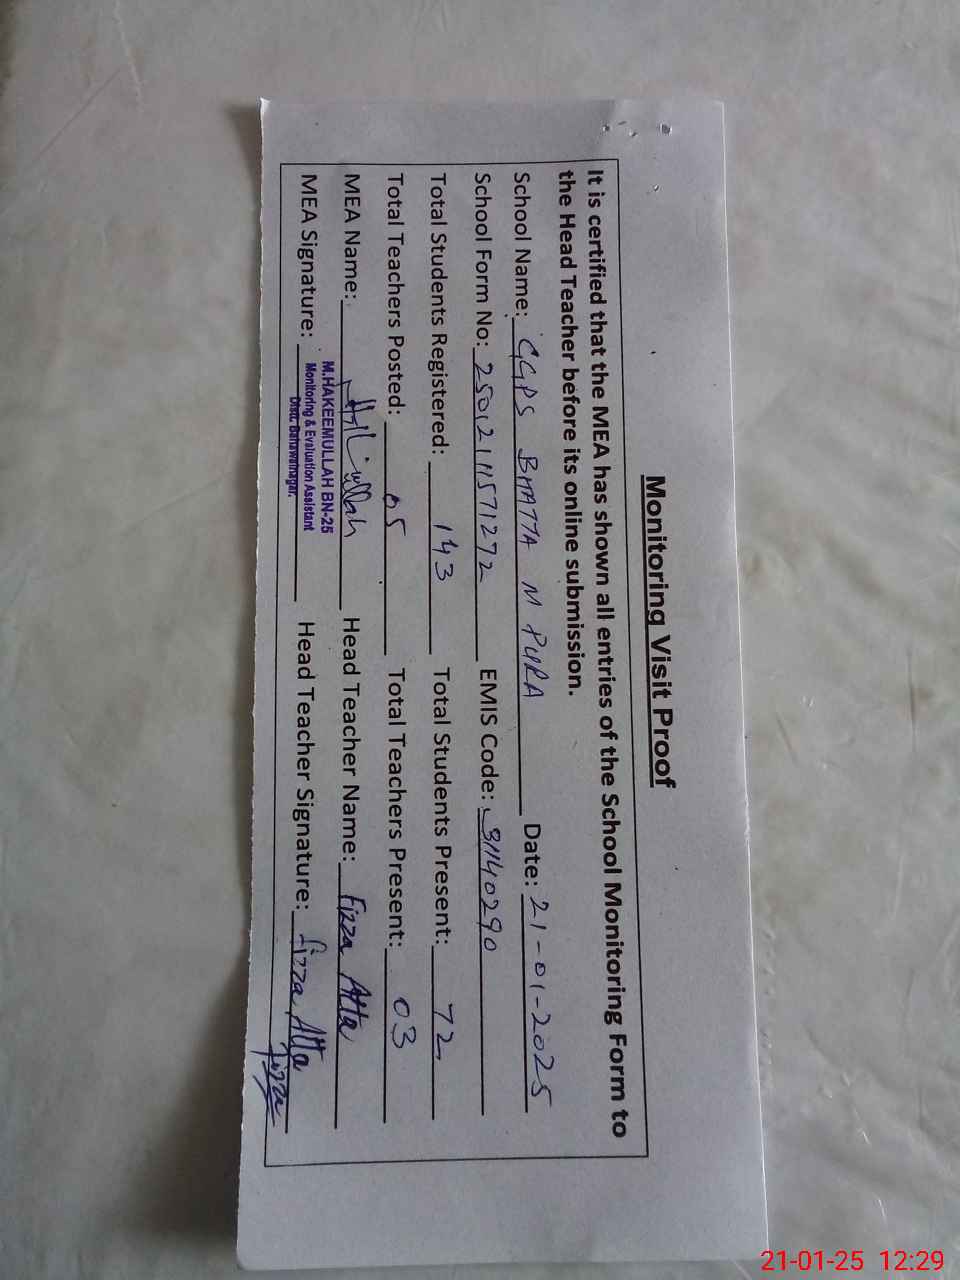 Monitoring Visit Proof
It is certified that the MEA has shown all entries of the School Monitoring Form to
the Head Teacher before its online submission.
School Name: GGPS BHATTA M PURA Date: 21-01-2025
School Form No: 25012111571272 EMIS Code: 31140290
Total Students Registered: 143 Total Students Present: 72
Total Teachers Posted: 05 Total Teachers Present: 03
MEA Name: Head Teacher Name: Fizza Atta
MEA Signature: Head Teacher Signature: Fizza Atta
Fizza
M.HAKEEMULLAH BN-25
Monitoring & Evaluation Assistant
Distt. Bahawalnagar.
21-01-25 12:29